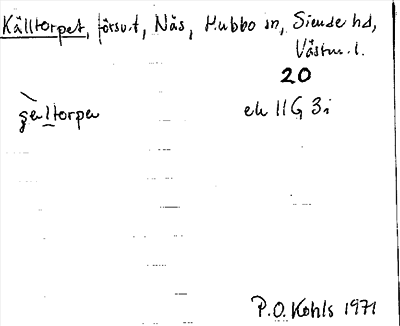 Källtorpet, försv.t, Näs, Hubbo sn, Siende hd,
Västm. l.
20
ek 11G 3i
P.O. Kohls 1971